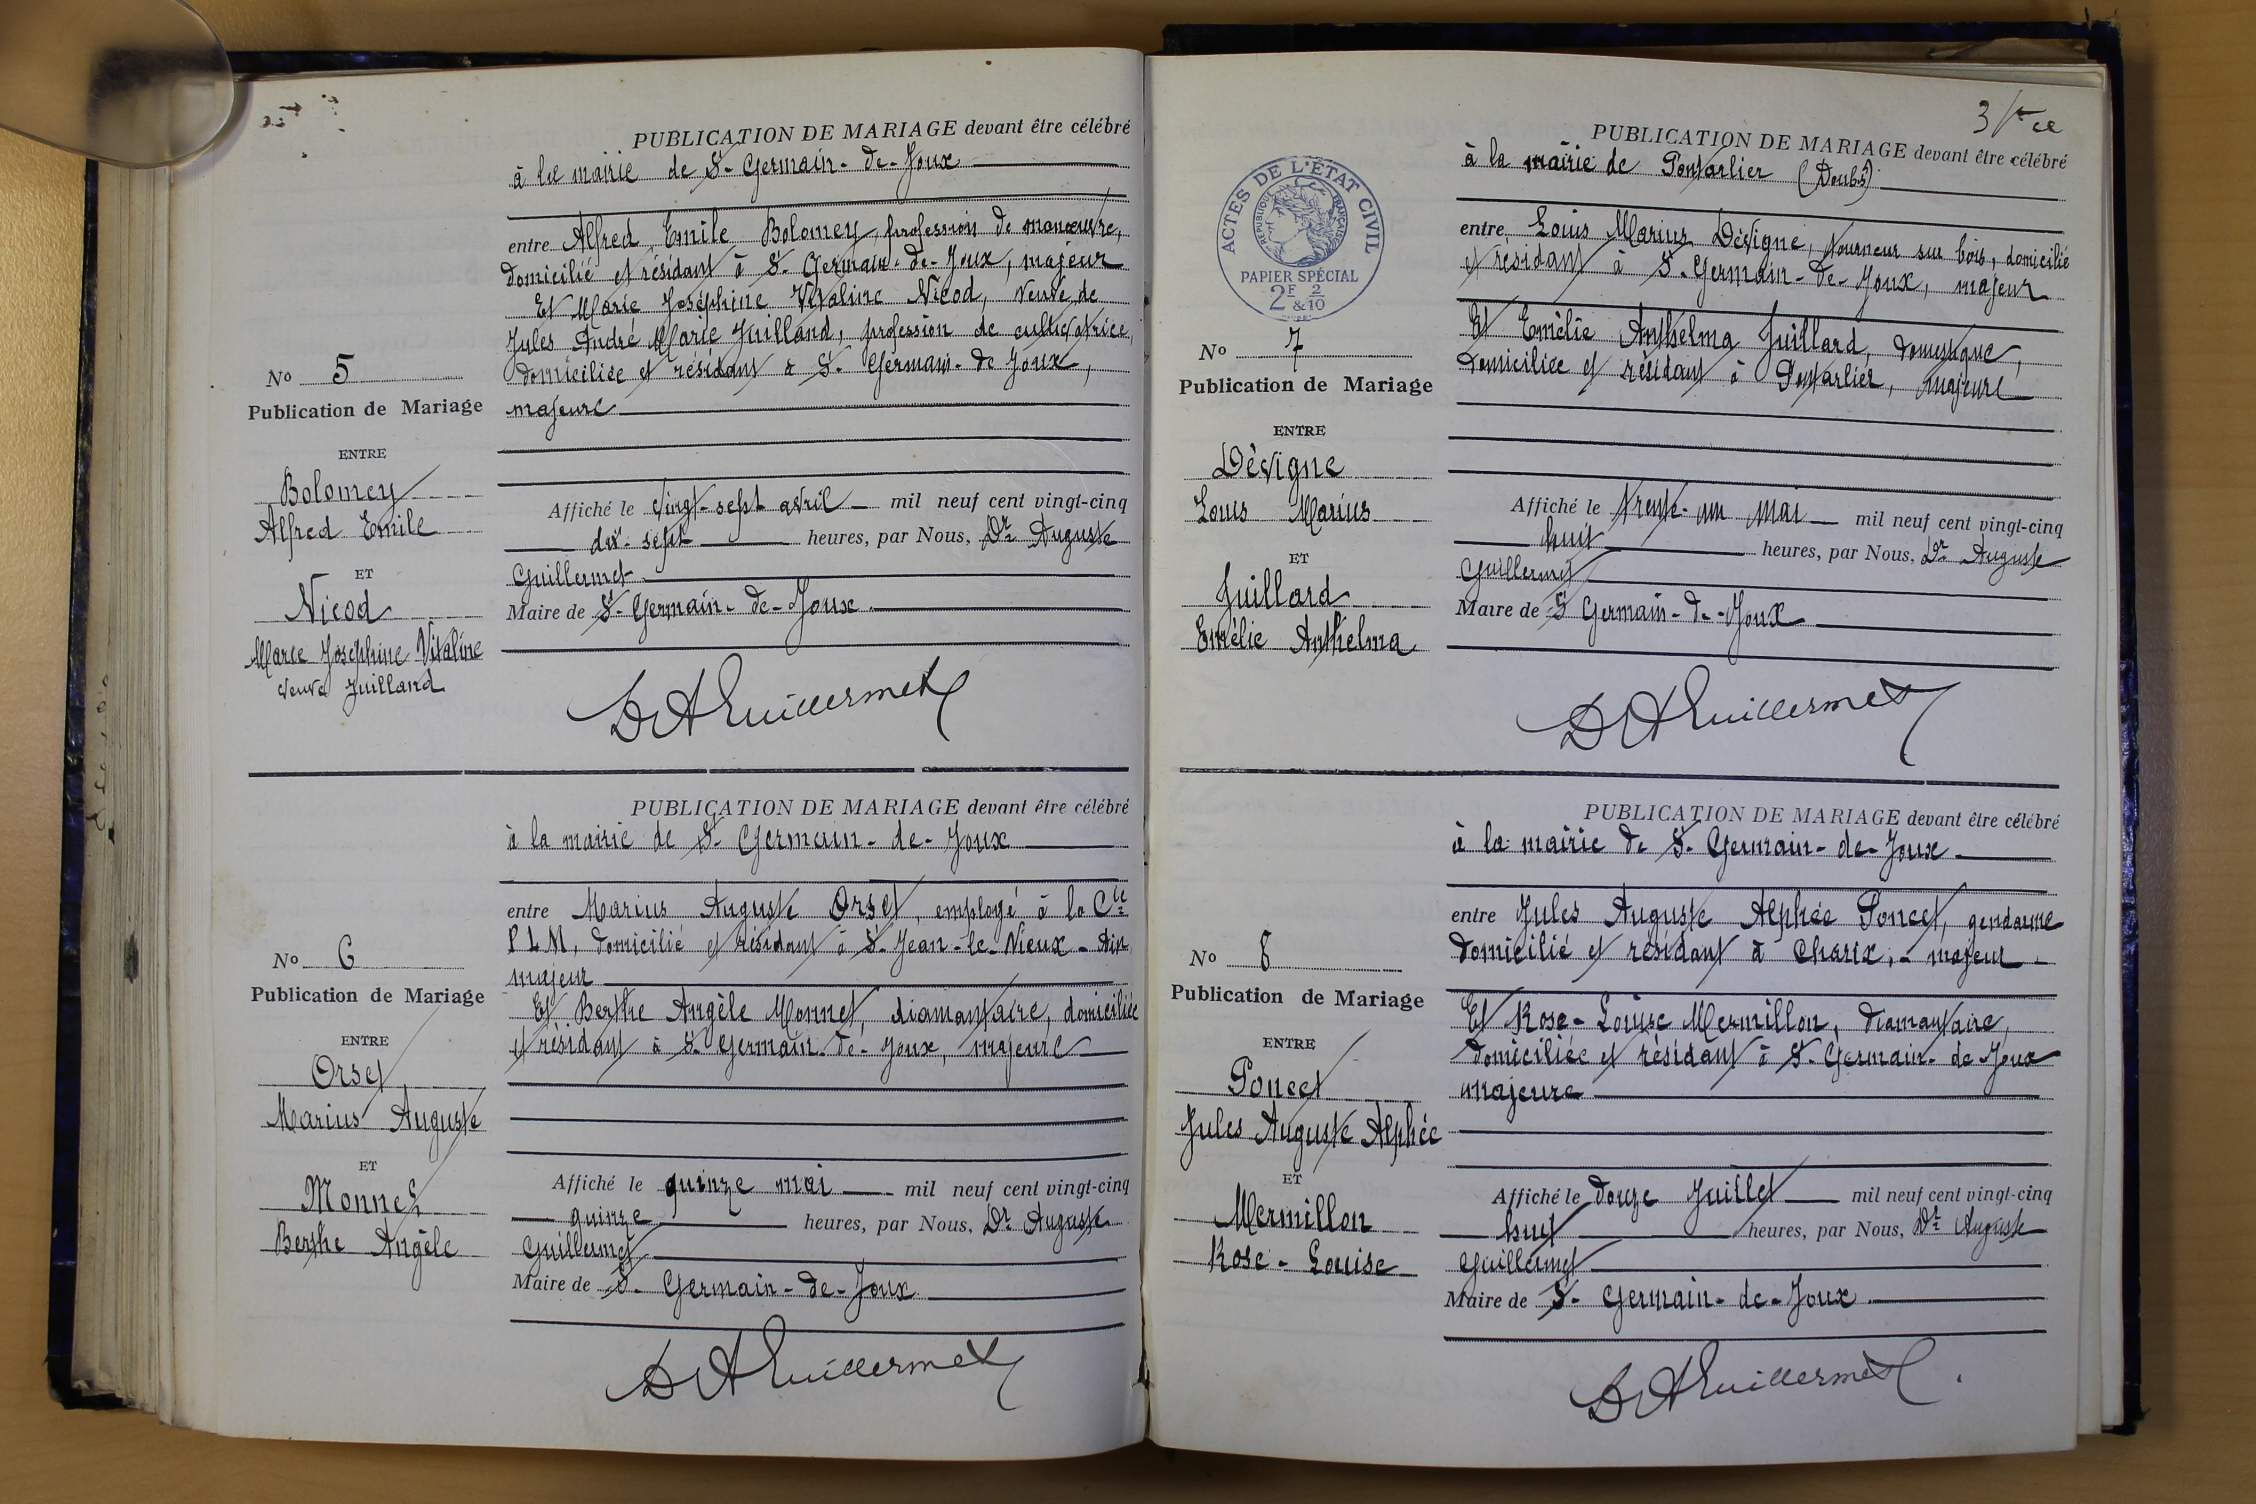 PUBLICATION DE MARIAGE devant être célébré
à la mairie de St Germain-de-Joux
entre Alfred Emile Bolomey, profession de manœuvre,
domicilié et résidant à St Germain-de-Joux, majeur
Et Marie Joséphine Vitaline Nicod, veuve de
Jules André Marie Juilland, profession de cultivatrice,
domiciliée et résidant à St Germain-de Joux,
majeure
No 5
Publication de Mariage
ENTRE
Bolomey
Alfred Emile
ET
Nicod
Marie Joséphine Vitaline
veuve Juilland
Affiché le vingt-sept avril mil neuf cent vingt-cinq
dix-sept heures, par Nous, Dr Auguste
Guillermet
Maire de St Germain-de-Joux
Dr A Guillermet
PUBLICATION DE MARIAGE devant être célébré
à la mairie de St Germain-de-Joux
entre Marius Auguste Orset, employé à la Cie
PLM, domicilié et résidant à St Jean-le-Vieux-Ain
majeur
Et Berthe Angèle Monnet, diamantaire, domiciliée
et résidant à St Germain-de-Joux, majeure
No 6
Publication de Mariage
ENTRE
Orset
Marius Auguste
ET
Monnet
Berthe Angèle
Affiché le quinze mai mil neuf cent vingt-cinq
quinze heures, par Nous, Dr Auguste
Guillermet
Maire de St Germain-de-Joux
Dr A Guillermet
3
PUBLICATION DE MARIAGE devant être célébré
à la mairie de Pontarlier (Doubs)
ACTES DE L'ÉTAT CIVIL
RÉPUBLIQUE FRANÇAISE
PAPIER SPÉCIAL
2F & 2/10
entre Louis Marius Dévigne, tourneur sur bois, domicilié
et résidant à St Germain-de-Joux, majeur
Et Emélie Anthelma Juillard, domestique,
domiciliée et résidant à Pontarlier, majeure
No 7
Publication de Mariage
ENTRE
Dévigne
Louis Marius
ET
Juillard
Emélie Anthelma
Affiché le trente-un mai mil neuf cent vingt-cinq
huit heures, par Nous, Dr Auguste
Guillermet
Maire de St Germain-de-Joux
Dr A Guillermet
PUBLICATION DE MARIAGE devant être célébré
à la mairie de St Germain-de-Joux
entre Jules Auguste Alphée Poncet, gendarme
domicilié et résidant à Charix, majeur
Et Rose-Louise Mermillon, diamantaire,
domiciliée et résidant à St Germain-de Joux
majeure
No 8
Publication de Mariage
ENTRE
Poncet
Jules Auguste Alphée
ET
Mermillon
Rose-Louise
Affiché le douze Juillet mil neuf cent vingt-cinq
huit heures, par Nous, Dr Auguste
Guillermet
Maire de St Germain-de-Joux
Dr A Guillermet